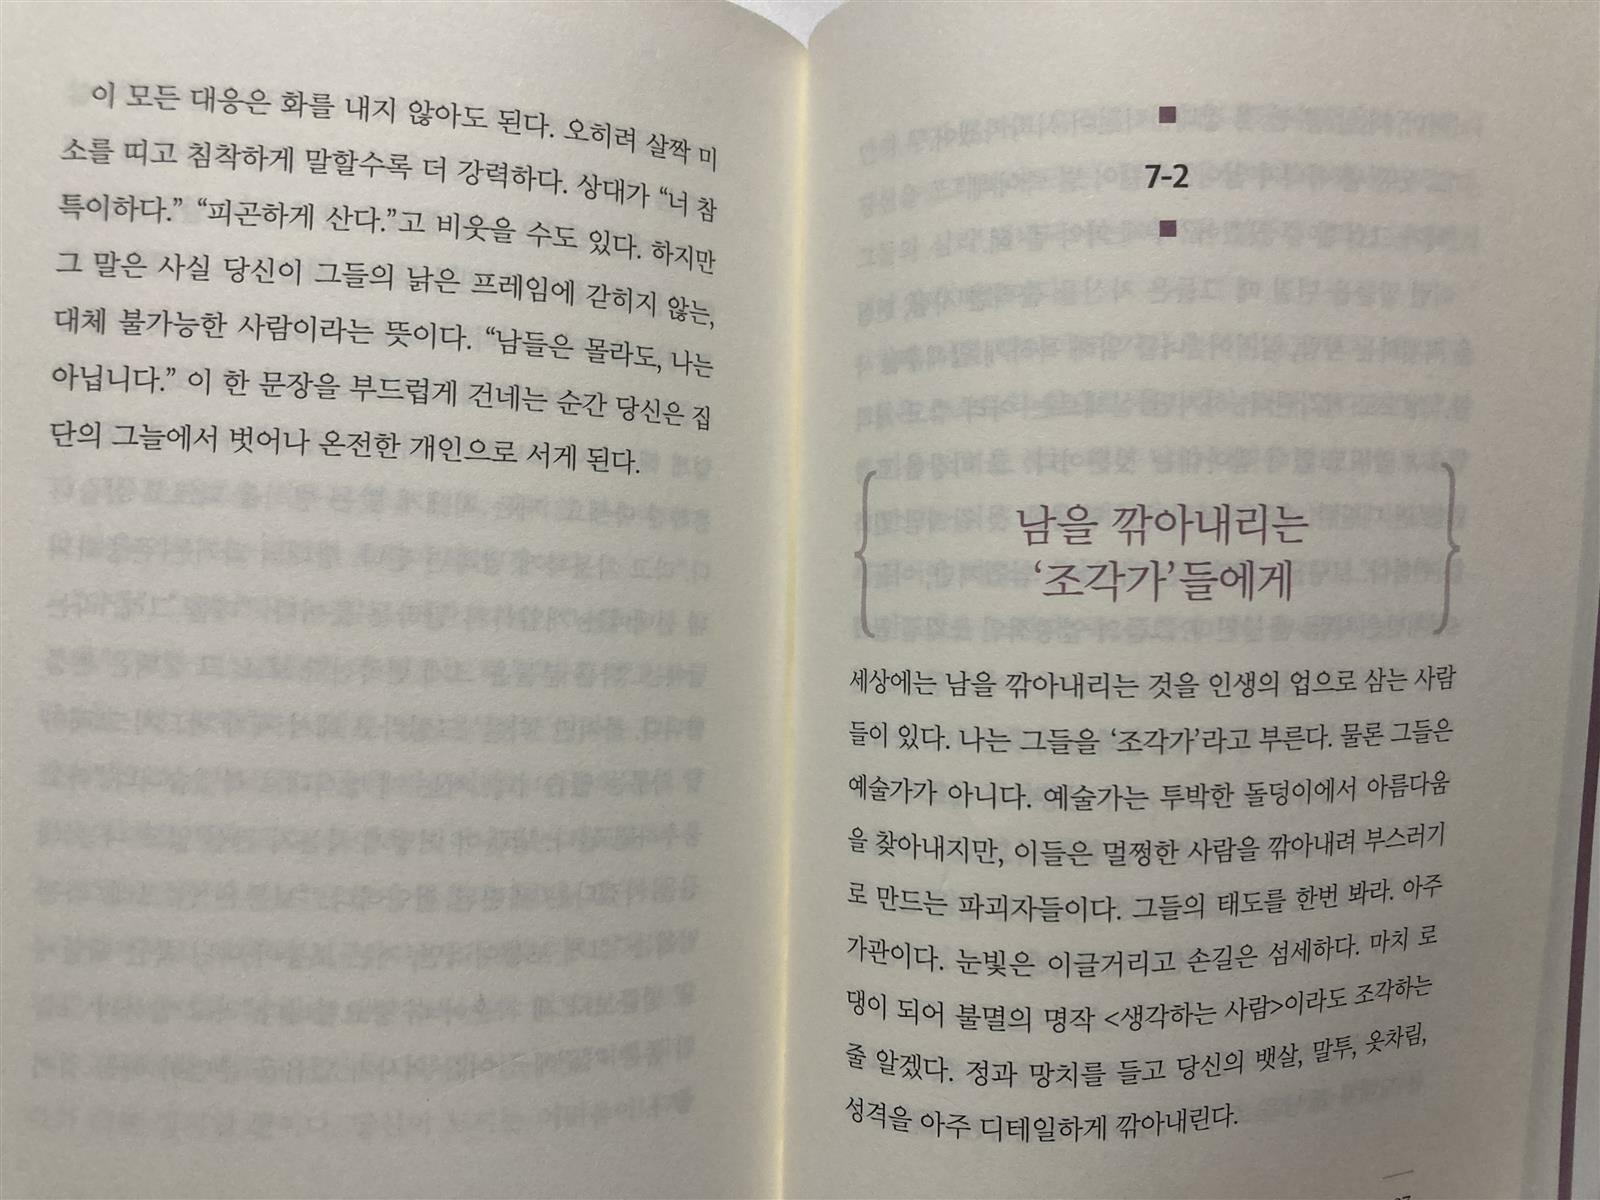 이 모든 대응은 화를 내지 않아도 된다. 오히려 살짝 미
소를 띠고 침착하게 말할수록 더 강력하다. 상대가 “너 참
특이하다.” “피곤하게 산다.”고 비웃을 수도 있다. 하지만
그 말은 사실 당신이 그들의 낡은 프레임에 갇히지 않는,
대체 불가능한 사람이라는 뜻이다. “남들은 몰라도, 나는
아닙니다.” 이 한 문장을 부드럽게 건네는 순간 당신은 집
단의 그늘에서 벗어나 온전한 개인으로 서게 된다.
7-2
남을 깎아내리는
‘조각가’들에게
세상에는 남을 깎아내리는 것을 인생의 업으로 삼는 사람
들이 있다. 나는 그들을 ‘조각가’라고 부른다. 물론 그들은
예술가가 아니다. 예술가는 투박한 돌덩이에서 아름다움
을 찾아내지만, 이들은 멀쩡한 사람을 깎아내려 부스러기
로 만드는 파괴자들이다. 그들의 태도를 한번 봐라. 아주
가관이다. 눈빛은 이글거리고 손길은 섬세하다. 마치 로
댕이 되어 불멸의 명작 <생각하는 사람>이라도 조각하는
줄 알겠다. 정과 망치를 들고 당신의 뱃살, 말투, 옷차림,
성격을 아주 디테일하게 깎아내린다.